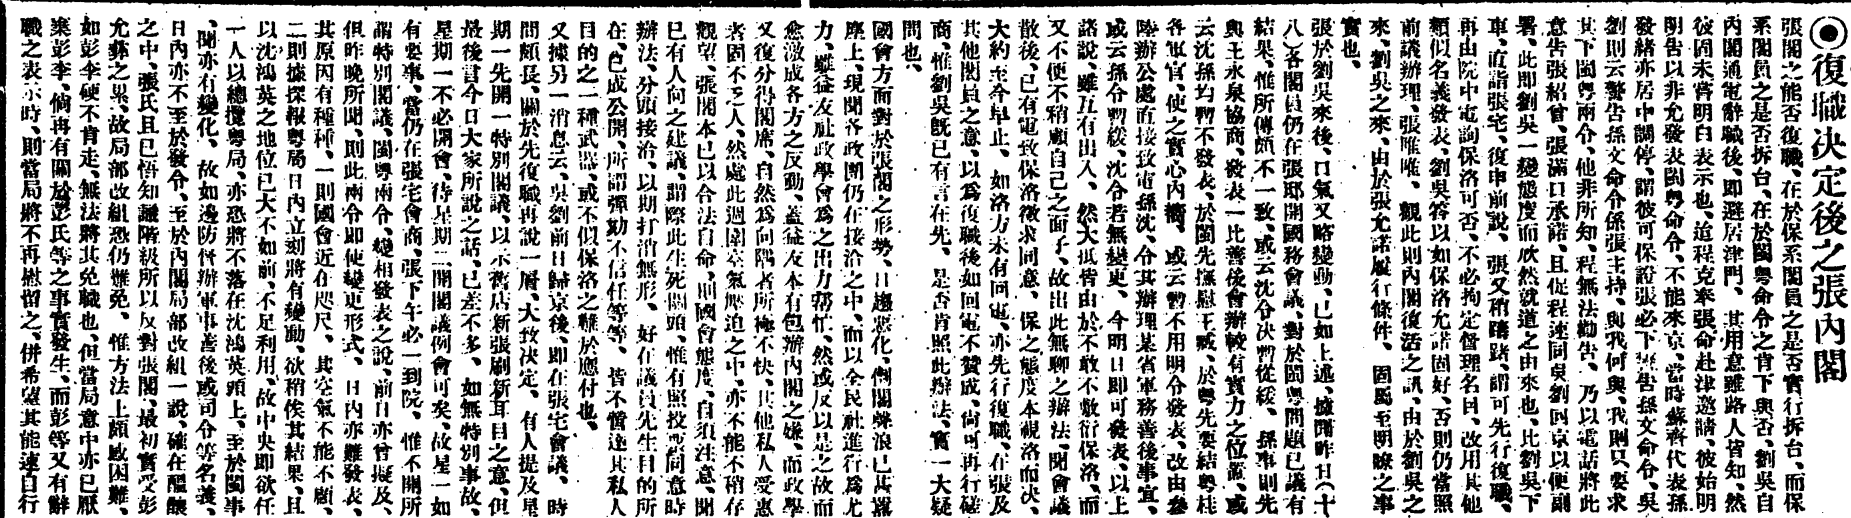 ◉復職决定後之張内閣
張閣之能否復職、在於保系閣員之是否實行拆台、而保
系閣員之是否拆台、在於閩粤命令之肯下與否、劉吳自
内閣通電辭職後、即避居津門、其用意雖路人皆知、然
彼固未嘗明白表示也、迨程克奉張命赴津邀請、彼始明
明告以非允發表閩粤命令、不能來京、當時蘇齊代表孫
發緒亦居中調停、謂彼可保證張必下警告孫文命令、吳
劉則云警告孫文命令係張主持、與我何與、我則只要求
其下閩粤兩令、他非所知、程無法勸告、乃以電話將此
意告張紹曾、張滿口承諾、且促程速同吳劉囘京以便副
署、此即劉吳一變態度而欣然就道之由來也、比劉吳下
車、直詣張宅、復申前說、張又稍躊躇、謂可先行復職、
再由院中電詢保洛可否、不必拘定督理名目、改用其他
類似名義發表、劉吳答以如保洛允諾固好、否則仍當照
前議辦理、張唯唯、觀此則内閣復活之訊、由於劉吳之
來、劉吳之來、由於張允諾履行條件、固屬至明瞭之事
實也、
張於劉吳來後、口氣又略變動、已如上述、據聞昨廿(十
八)各閣員仍在張邸開國務會議、對於閩粤問題已議有
結果、惟所傳頗不一致、或云沈令决暫從緩、孫事則先
與王永泉協商、發表一比善後會辦較有實力之位置、或
云沈孫均暫不發表、於閩先撫慰王臧、於粤先要結粤桂
各軍官、使之實心内嚮、或云暫不用明令發表、改由參
陸辦公處直接致電孫沈、令其辦理某省軍務善後事宜、
或云孫令暫緩、沈令若無變更、今明日即可發表、以上
諸說、雖互有出入、然大抵皆由於不敢不敷衍保洛、而
又不便不稍顧自己之面子、故出此無聊之辦法、聞會議
散後、已有電致保洛徵求同意、保之態度本視洛而决、
大約至今早止、如洛方未有囘電、亦先行復職、在張及
其他閣員之意、以爲復職後如囘電不贊成、尚可再行磋
商、惟劉吳旣已有言在先、是否肯照此辦法、實一大疑
問也、
國會方面對於張閣之形勢、日趨惡化、倒閣聲浪已甚囂
塵上、現聞各政團仍在接洽之中、而以全民社進行爲尤
力、雖益友社政學會爲之出力帮忙、然或反以是之故而
愈激成各方之反動、蓋益友本有包辦内閣之嫌、而政學
又復分得閣席、自然爲向隅者所極不快、其他私人受惠
者固不乏人、然處此週圍空氣壓迫之中、亦不能不稍存
觀望、張閣本已以合法自命、則國會態度、自須注意、聞
已有人向之建議、謂際此生死關頭、惟有照投票同意時
辦法、分頭接洽、以期打消無形、好在議員先生目的所
在、已成公開、所謂彈劾不信任等等、皆不嘗達其私人
目的之一種武器、或不似保洛之難於應付也、
又據另一消息云、吳劉前日歸京後、即在張宅會議、時
間頗長、關於先復職再說一層、大致决定、有人提及星
期一先開一特別閣議、以示舊店新張刷新耳目之意、但
最後言今日大家所說之話、已差不多、如無特別事故、
星期一不必開會、待星期二開閣議例會可矣、故星一如
有要事、當仍在張宅會商、張下午必一到院、惟不開所
謂特別閣議、閩粤兩令、變相發表之說、前日亦曾擬及、
但昨晚所聞、則此兩令即使變更形式、日内亦難發表、
其原因有種種、一則國會近在咫尺、其空氣不能不顧、
二則據探報粤局日内立刻將有變動、欲稍俟其結果、且
以沈鴻英之地位已大不如前、不足利用、故中央即欲任
一人以總攬粤局、亦恐將不落在沈鴻英頭上、至於閩事
、聞亦有變化、故如邊防督辦軍事善後或司令等名義、
日内亦不至於發令、至於内閣局部改組一說、確在醞釀
之中、張氏且已悟知議階級所以反對張閣、最初實受彭
允彝之累、故局部改組恐仍難免、惟方法上頗感困難、
如彭李硬不肯走、無法將其免職也、但當局意中亦已厭
棄彭李、倘再有關於彭氏等之事實發生、而彭等又有辭
職之表示時、則當局將不再慰留之、併希望其能速自行